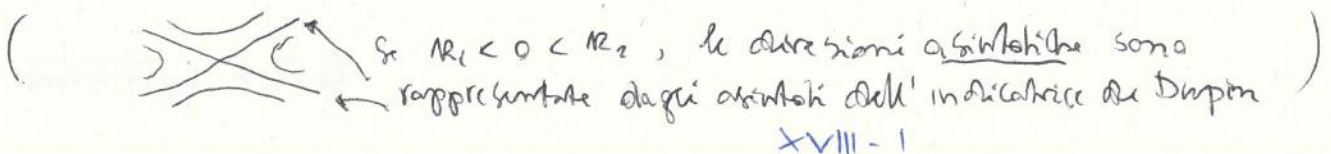 ( Se K₁ < 0 < K₂, le direzioni asintotiche sono )
rappresentate dagli asintoti dell'indicatrice di Dupin
XVIII - I